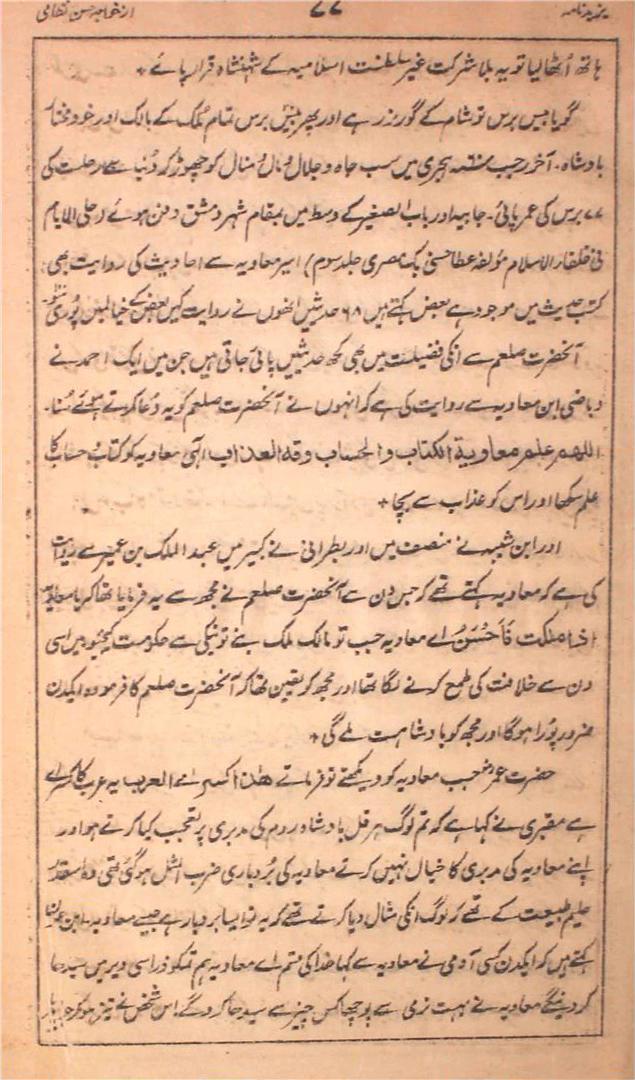 یزید نامہ ۷۷ از خواجہ حسن نظامی
ہاتھ اُٹھالیا تو یہ بلا شرکت غیر سلطنت اسلامیہ کے شہنشاہ قرار پائے +
گویا بیس برس تو شام کے گورنر رہے اور پھر بیس برس تمام مُلک کے مالک اور خود مختار
بادشاہ۔ آخر رجب سنہ ۶۰ ہجری میں سب جاہ و جلال و مال و منال کو چھوڑ کر دُنیا سے رحلت کی
۷۷ برس کی عمر پائی۔ جابیہ اور باب الصغیر کے وسط میں بمقام شہر دمشق دفن ہوئے (حلی الایام
فی خلفاء الاسلام مؤلفہ عطا حسنی بک مصری جلد سوم) امیر معاویہ سے احادیث کی روایت بھی
کتب حدیث میں موجود ہے بعض کہتے ہیں ۶۸ حدیثیں انھوں نے روایت کیں بعض کے خیال میں پوری
آنحضرت صلعم سے انکی فضیلت میں بھی کچھ حدیثیں پائی جاتی ہیں جن میں ایک احمد نے
ابن معاویہ سے روایت کی ہے کہ انہوں نے آنحضرت صلعم کو یہ دُعا کرتے ہوئے سُنا۔
اللهم علم معاوية الكتاب والحساب وقه العذاب الٰہی معاویہ کو کتاب حساب کا
علم سکھا اور اس کو عذاب سے بچا +
اور ابن شیبہ نے منصف میں اور بطرانی نے کبیر میں عبد الملک بن عمیر سے روایت
کی ہے کہ معاویہ کہتے تھے کہ جس دن سے آنحضرت صلعم نے مجھ سے یہ فرمایا تھا کہ یا معاویہ
اذا ملكت فَاَحْسَنُ اے معاویہ جب تو مالک ملک بنے تو نیکی سے حکومت کیجیو میں اسی
دن سے خلافت کی طمع کرنے لگا تھا اور مجھ کو یقین تھا کہ آنحضرت صلعم کا فرمودہ ایکدن
ضرور پُورا ہوگا اور مجھ کو بادشاہت ملے گی +
حضرت عمرؓ جب معاویہ کو دیکھتے تو فرماتے هذا اكسرى العرب یہ عرب کا کسرٰی
ہے مقبری نے کہا ہے کہ تم لوگ ہرقل بادشاہ روم کی مدبری پر تعجب کیا کرتے ہو اور
اپنے معاویہ کی مدبری کا خیال نہیں کرتے معاویہ کی بُردباری ضرب المثل ہوگئی تھی وہ اسقدر
حلیم طبیعت کے تھے کہ لوگ انکی مثال دیا کرتے تھے کہ یہ تو ایسا بردبار ہے جیسے معاویہ۔ ابن
کہتے ہیں کہ ایکدن کسی آدمی نے معاویہ سے کہا خدا کی قسم اے معاویہ ہم تمکو ذرا سی دیر میں سیدھا
کر دینگے معاویہ نے بہت نرمی سے پوچھا کس چیز سے سیدھا کرو گے؟ اس شخص نے تیز ہو کر جواب